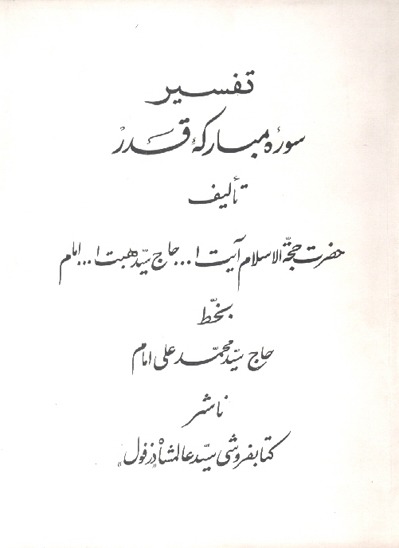 تفسیر
سورهٔ مبارکهٔ قدر
تألیف
حضرت حجة الاسلام آیت ا... حاج سیّد هبت ا... امام
بخطّ
حاج سیّد محمّد علی امام
ناشر
کتابفروشی سیّد عالمشاه دزفول